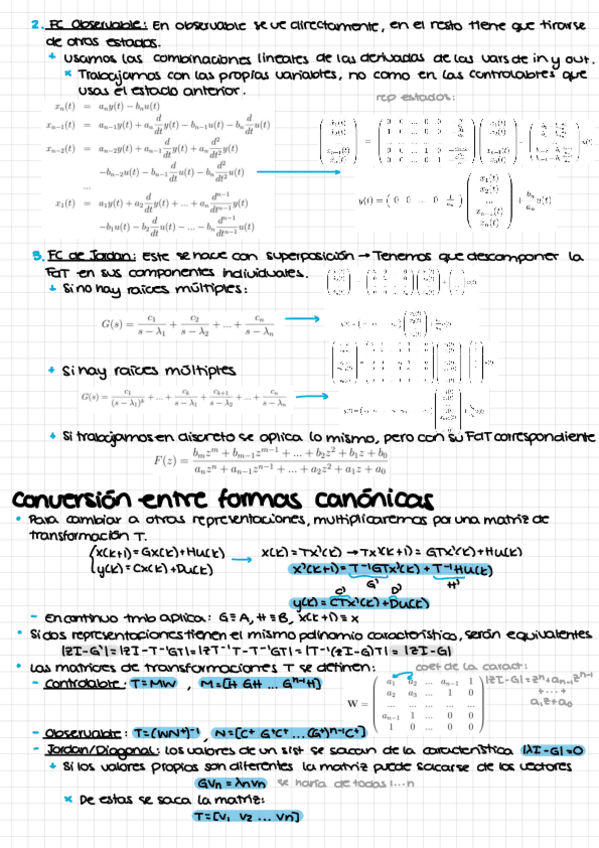 2. FC Observable: En observable se ve directamente, en el resto tiene que tirarse
de otros estados.
+ Usamos las combinaciones lineales de las derivadas de las vars de in y out.
* Trabajamos con las propias variables, no como en las controlables que
usas el estado anterior.
rep estados:
x_n(t) = a_n y(t) − b_n u(t)
x_{n−1}(t) = a_{n−1}y(t) + a_n d/dt y(t) − b_{n−1}u(t) − b_n d/dt u(t)
x_{n−2}(t) = a_{n−2}y(t) + a_{n−1} d/dt y(t) + a_n d²/dt² y(t)
−b_{n−2}u(t) − b_{n−1} d/dt u(t) − b_n d²/dt² u(t)
...
x_1(t) = a_1y(t) + a_2 d/dt y(t) + ... + a_n d^{n−1}/dt^{n−1} y(t)
−b_1u(t) − b_2 d/dt u(t) − ... − b_n d^{n−1}/dt^{n−1} u(t)
3. FC de Jordan: Este se hace con superposición → Tenemos que descomponer la
FdT en sus componentes individuales.
+ Si no hay raíces múltiples:
G(s) = c_1/(s − λ_1) + c_2/(s − λ_2) + ... + c_n/(s − λ_n)
+ Si hay raíces múltiples
G(s) = c_1/(s−λ_1)^k + ... + c_k/(s−λ_1) + c_{k+1}/(s−λ_2) + ... + c_n/(s−λ_n)
+ Si trabajamos en discreto se aplica lo mismo, pero con su FdT correspondiente
F(z) = (b_m z^m + b_{m−1}z^{m−1} + ... + b_2z² + b_1z + b_0)/(a_n z^n + a_{n−1}z^{n−1} + ... + a_2z² + a_1z + a_0)
Conversión entre formas canónicas
• Para cambiar a otras representaciones, multiplicaremos por una matriz de
transformación T.
{x(k+1)=Gx(k)+Hu(k) → x(k)=Tx'(k) → Tx'(k+1)=GTx'(k)+Hu(k)
y(k)=Cx(k)+Du(k) x'(k+1)=T⁻¹GTx'(k)+T⁻¹Hu(k)
G' H'
C' D'
y(k)=CTx'(k)+Du(k)
- En continuo tmb aplica: G≡A, H≡B, x(k+1)≡ẋ
• Si dos representaciones tienen el mismo polinomio característico, serán equivalentes
|zI-G'|=|zI-T⁻¹GT|=|zT⁻¹T-T⁻¹GT|=|T⁻¹(zI-G)T|=|zI-G|
• Las matrices de transformaciones T se definen:
coef de la caract:
- Controlable: T=MW , M=[H GH ... Gⁿ⁻¹H]
W = ( a_1 a_2 ... a_{n−1} 1
a_2 a_3 ... 1 0
... ... ... ... ...
a_{n−1} 1 ... 0 0
1 0 ... 0 0 )
|zI-G|=zⁿ+a_{n-1}zⁿ⁻¹
+...+
a_1z+a_0
- Observable: T=(WN*)⁻¹, N=[C* G*C* ... (G*)ⁿ⁻¹C*]
- Jordan/Diagonal: los valores de un sist se sacan de la característica |λI-G|=0
+ Si los valores propios son diferentes la matriz puede sacarse de los vectores
GVn=λnVn se haría de todas 1...n
* De estas se saca la matriz:
T=[V1 V2 ... Vn]